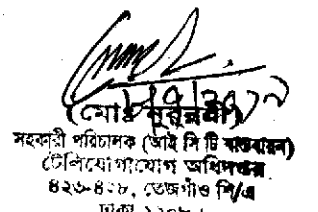 (মোঃ নুরন্নবী)
সহকারী পরিচালক (আই সি টি বাস্তবায়ন)
টেলিযোগাযোগ অধিদপ্তর
৪২৬-৪২৮, তেজগাঁও শি/এ
ঢাকা